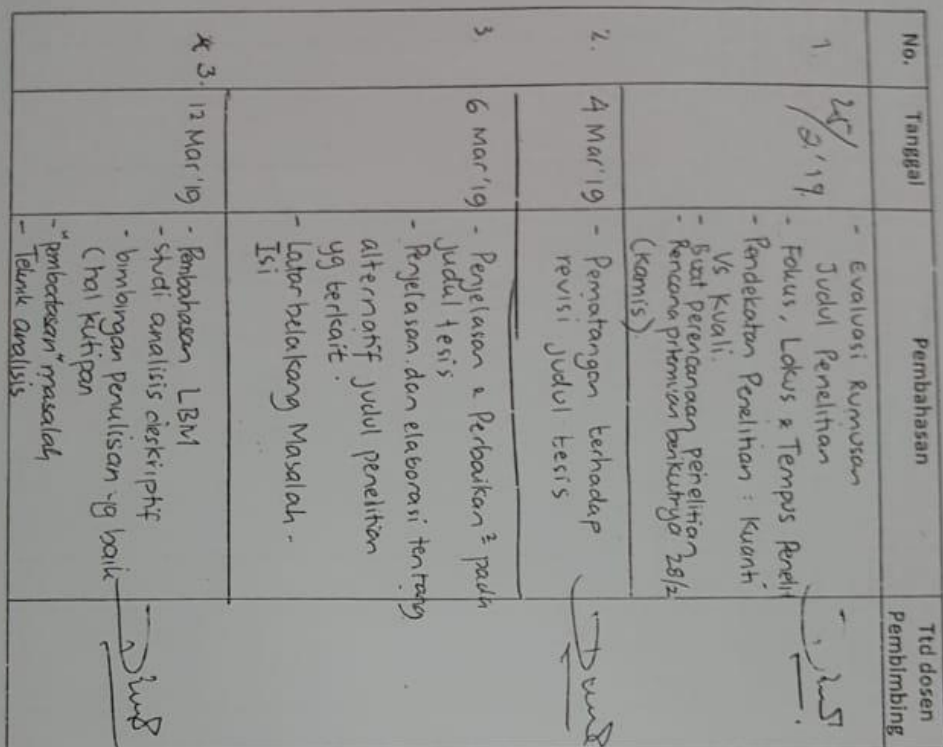 No.
Tanggal
Pembahasan
Ttd dosen
Pembimbing
1.
25/2'19.
- Evaluasi Rumusan
Judul Penelitian
- Fokus, Lokus & Tempus Penelit
- Pendekatan Penelitian : Kuanti
Vs Kuali.
- Buat perencanaan penelitian
- Rencana prtemuan berikutnya 28/2
(Kamis)
2.
4 Mar'19
- Pematangan terhadap
revisi judul tesis
3.
6 Mar'19
- Penjelasan & Perbaikan² pada
judul tesis
- Penjelasan dan elaborasi tentang
alternatif judul penelitian
yg terkait.
- Latar belakang Masalah -
Isi
* 3.
12 Mar'19
- Pembahasan LBM
- studi analisis deskriptif
- bimbingan penulisan yg baik
(hal kutipan
- "pembatasan" masalah
- Teknik analisis